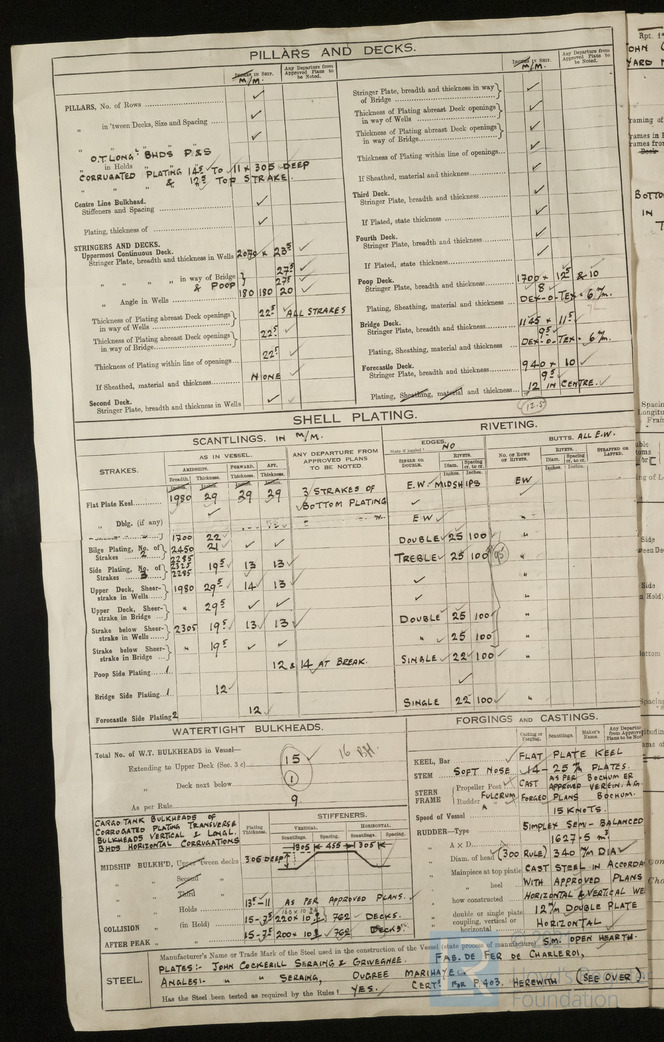 PILLARS AND DECKS.
INCHES IN SHIP.
M/M.
Any Departure from Approved Plans to be Noted.
PILLARS, No. of Rows
" in 'tween Decks, Size and Spacing
" " "
O.T LONGL BHDS P&S
" in Holds
CORRUGATED PLATING 14.5 TO 11 x 305 DEEP
& 12.5 TOP STRAKE.
Centre Line Bulkhead.
Stiffeners and Spacing
Plating, thickness of
STRINGERS AND DECKS.
Uppermost Continuous Deck.
Stringer Plate, breadth and thickness in Wells 2070 x 23.5
" " " in way of Bridge 27.5
& POOP 27.5
" Angle in Wells 180 180 20
Thickness of Plating abreast Deck openings in way of Wells 22.5 ALL STRAKES
Thickness of Plating abreast Deck openings in way of Bridge 22.5
Thickness of Plating within line of openings 22.5
If Sheathed, material and thickness NONE
Second Deck.
Stringer Plate, breadth and thickness in Wells
INCHES IN SHIP.
M/M.
Any Departure from Approved Plans to be Noted.
Stringer Plate, breadth and thickness in way of Bridge
Thickness of Plating abreast Deck openings in way of Wells
Thickness of Plating abreast Deck openings in way of Bridge
Thickness of Plating within line of openings
If Sheathed, material and thickness
Third Deck.
Stringer Plate, breadth and thickness
If Plated, state thickness
Fourth Deck.
Stringer Plate, breadth and thickness
If Plated, state thickness
Poop Deck.
Stringer Plate, breadth and thickness 1700 x 12.5 & 10
Plating, Sheathing, material and thickness 8 DEX-O-TEX - 6 M/M.
Bridge Deck.
Stringer Plate, breadth and thickness 1145 x 11.5
Plating, Sheathing, material and thickness 9.5 DEX-O-TEX - 6 M/M.
Forecastle Deck.
Stringer Plate, breadth and thickness 940 x 10
9.5
Plating, Sheathing, material and thickness 12 IN CENTRE.
(12.5)
SHELL PLATING.
SCANTLINGS. IN M/M.
RIVETING.
STRAKES.
AS IN VESSEL.
AMIDSHIPS. FORWARD. AFT.
Breadth. Thickness. Thickness. Thickness.
ANY DEPARTURE FROM APPROVED PLANS TO BE NOTED
EDGES. NO
SINGLE OR DOUBLE.
RIVETS.
Diam. Spacing cr. to cr.
BUTTS. ALL E.W.
NO. OF ROWS OF RIVETS.
RIVETS.
Diam. Spacing cr. to cr.
STRAPPED OR LAPPED.
Flat Plate Keel 1980 29 29 29 3 STRAKES OF BOTTOM PLATING E.W. MIDSHIPS EW
" Dblg. (if any) EW "
1700 22 DOUBLE 25 100 "
Bilge Plating, No. of Strakes 2 2450 21 TREBLE 25 100 "
Side Plating, No. of Strakes 3 2285 2325 2285 19.5 13 13 "
Upper Deck, Sheer-strake in Wells 1980 29.5 14 13 "
Upper Deck, Sheer-strake in Bridge " 29.5 DOUBLE 25 100 "
Strake below Sheer-strake in Wells 2305 19.5 13 13 " 25 100 "
Strake below Sheer-strake in Bridge " 19.5 SINGLE 22 100 "
Poop Side Plating 1 12 & 14 AT BREAK.
Bridge Side Plating 1 12 "
Forecastle Side Plating 2 12 SINGLE 22 100 "
WATERTIGHT BULKHEADS.
Total No. of W.T. BULKHEADS in Vessel—
Extending to Upper Deck (Sec. 3 c) 15 16
" Deck next below 1
As per Rule 9
CARGO TANK BULKHEADS OF CORRUGATED PLATING TRANSVERSE BULKHEADS VERTICAL & LONGL. BHDS HORIZONTAL CORRUGATIONS
Plating Thickness.
STIFFENERS.
VERTICAL. HORIZONTAL.
Scantlings. Spacing. Scantlings. Spacing.
305 455 305
MIDSHIP BULKH'D, Upper 'tween decks 305 DEEP
" " Second "
" " Third "
" " Holds 13.5-11 AS PER APPROVED PLANS.
COLLISION " (in Hold) 15-7.5 220 x 10.5 762 DECKS.
AFTER PEAK " " 15-7.5 200 x 10.5 762 DECKS.
FORGINGS AND CASTINGS.
Casting or Forging. Scantlings. Maker's Name. Any Departure from Approved Plans to be Noted
KEEL, Bar FLAT PLATE KEEL
STEM SOFT NOSE 14-25 M/M PLATES.
STERN FRAME { Propeller Post CAST AS PER APPROVED BOCHUMER VEREIN. A.G.
Rudder " FULCRUM FORGED PLANS BOCHUM.
Speed of Vessel 15 KNOTS.
RUDDER—Type SIMPLEX SEMI-BALANCED
" A x D 1627.5 M3
" Diam. of head (300 RULE) 340 M/M DIA
" Mainpiece at top pintle CAST STEEL IN ACCORDA
" " heel WITH APPROVED PLANS
" how constructed HORIZONTAL & VERTICAL WE
" double or single plate 12 M/M DOUBLE PLATE
" coupling, vertical or horizontal HORIZONTAL
STEEL.
Manufacturer's Name or Trade Mark of the Steel used in the construction of the Vessel (state process of manufacture) S.M. OPEN HEARTH.
PLATES:- JOHN COCKERILL SERAING & GRIVEGNEE. FAB. DE FER DE CHARLEROI,
ANGLES:- " " SERAING, OUGREE MARIHAYE.
Has the Steel been tested as required by the Rules? YES. CERTS FOR P.403. HEREWITH (SEE OVER)
Foundation